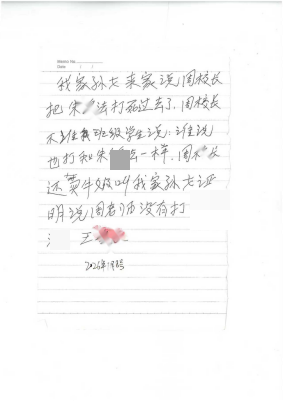 Memo No.
Date / /
我家孙女来家说周校长
把朱 去打死过去了.周校长
不准 班级学生说:谁说
也打和朱 去一样.周 长
还 叫我家孙女证
明说周老师没有打
王
2025年1月8号